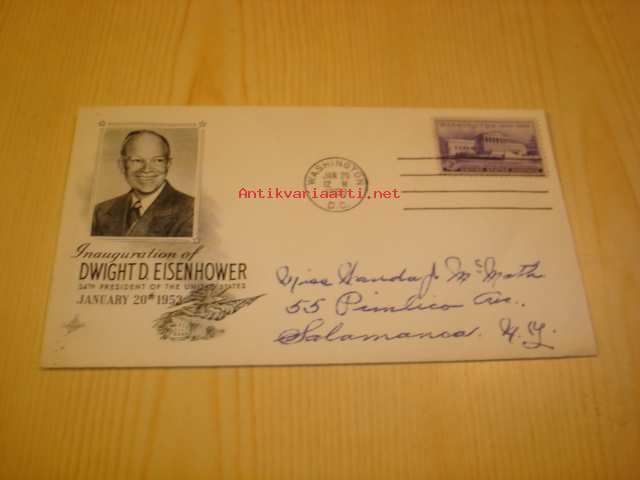 Inauguration of
DWIGHT D. EISENHOWER
34TH PRESIDENT OF THE UNITED STATES
JANUARY 20th 1953
WASHINGTON
JAN 20
12 M
D.C.
UNITED STATES
Antikvariaatti.net
Miss Wanda J. McMath
55 Pimlico Av.,
Salamanca, N.Y.